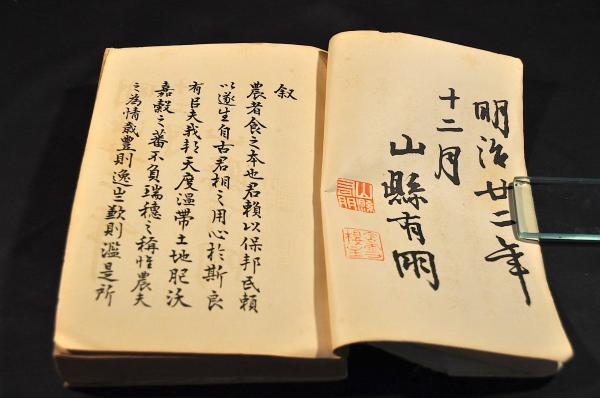 明治廿二年
十二月
山縣有朋
山縣有朋
叙
農者食之本也君賴以保邦民賴
以遂生自古君相之用心於斯良
有㠯夫我邦天度温帶土地肥沃
嘉穀之蕃不負瑞穗之称惟農夫
之為情歳豊則逸 歉則濫是所